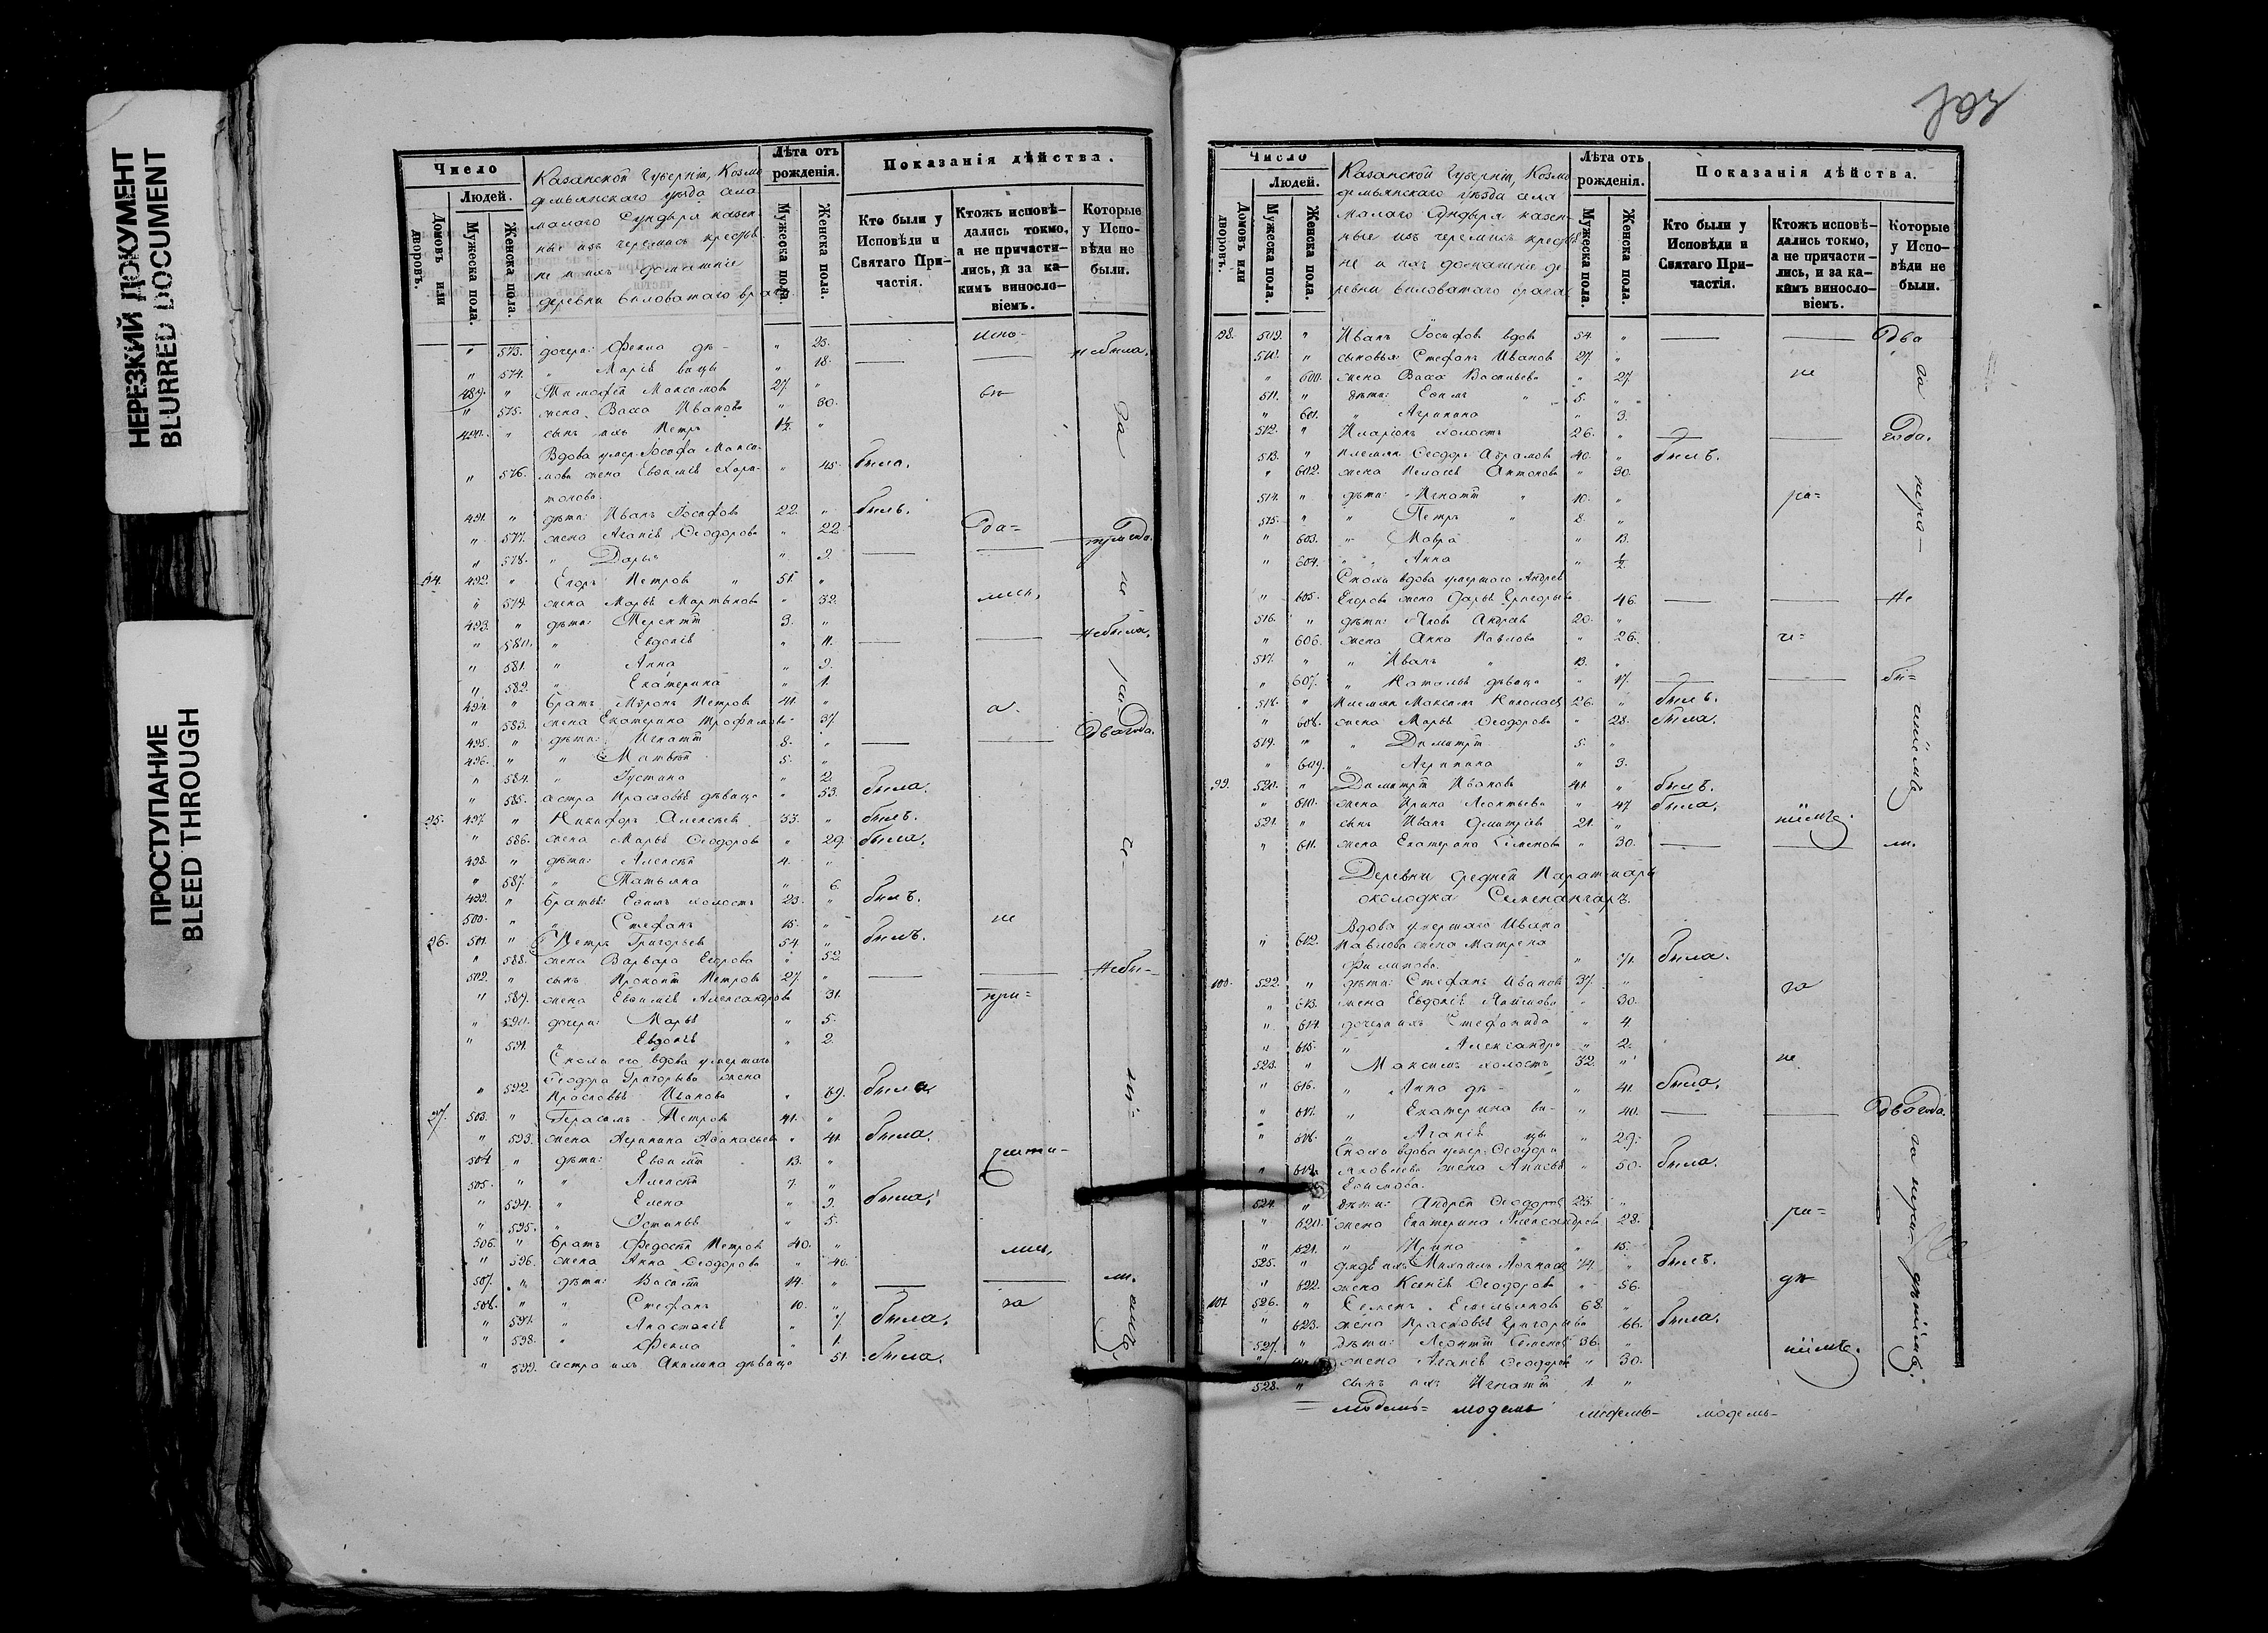 НЕРЕЗКИЙ ДОКУМЕНТ
BLURRED DOCUMENT
ПРОСТУПАНИЕ
BLEED THROUGH
Число
Людей.
Домовъ или дворовъ.
Мужеска пола.
Женска пола.
Казанской Губерніи, Козмо
демьянскаго уѣзда села
малаго Сундыря казен-
ные изъ черемисъ крестья
не и ихъ домашніе
деревни Виловатаго врага
Лѣта отъ рожденія.
Мужеска пола.
Женска пола.
Показанія дѣйства.
Кто были у Исповѣди и Святаго Причастія.
Ктожъ исповѣдались токмо, а не причастились, и за какимъ винословіемъ.
Которые у Исповѣди не были.
" 573. дочери: Фекла дѣ- " 23. испо-
" 574. " Марія вицы " 18. небыла.
489. " Тимофей Максимов 27. "
" 575. жена Васса Иванова " 30.
490. " сынъ ихъ Петръ 1½. "
Вдова умер. Іосифа Макси-
" 576. мова жена Евфимія Хари- " 45. была.
тонова.
491. " дѣти: Иванъ Іосифов 22. " былъ.
" 577. жена Агапія Ѳеодорова " 22.
" 578. " Дарья " 9.
94. 492. " Егоръ Петров " 51. "
" 579. жена Марья Мартынова " 52. лись,
493. " дѣти: Терентій 3. "
" 580. " Евдокія " 11. небыла.
" 581. " Анна " 9.
" 582. " Екатерина " 1.
494. " братъ Миронъ Петров 41. " а
" 583. жена Екатерина Трофимова " 37.
495. " дѣти: Игнатій 8. " Два года.
496. " " Матвѣй 5. "
" 584. " Іустина " 2.
" 585. сестра Прасковья дѣвица " 53. была.
95. 497. " Никифоръ Алексѣев 33. " былъ.
" 586. жена Марья Ѳеодорова " 29. была.
498. " дѣти: Алексѣй 4. "
" 587. " Татьяна " 6.
499. " братья: Ефимъ холостъ 23. " былъ.
500. " " Стефанъ 15. " не
96. 501. " Петръ Григорьев 54. " былъ.
" 588. жена Варвара Егорова " 52.
502. " сынъ Прокопій Петров 27. " Небы-
" 589. жена Евфимія Александрова 31. при-
" 590. дочери: Марья " 5.
" 591. " Евдокія " 2.
Сноха его вдова умершаго
Ѳеодора Григорьева жена
" 592. Прасковья Иванова " 69. была
97. 503. " Герасимъ Петров 41. "
" 593. жена Агрипина Аѳанасьева " 41. была.
504. " дѣти: Евфимій 13. " части-
505. " " Алексѣй 7. "
" 594. " Елена " 9. была.
" 595. " Устинья " 5.
506. " братъ Федосѣй Петров 40. " лись,
" 596. жена Анна Ѳеодорова " 40.
507. " дѣти: Василій 14. "
508. " " Стефанъ 10. " за
" 597. " Анастасія " 7. была.
" 598. " Фекла " 1.
" 599. сестра ихъ Акилина дѣвица 51. была.
Число
Людей.
Домовъ или дворовъ.
Мужеска пола.
Женска пола.
Казанской Губерніи, Козмо
демьянскаго уѣзда села
малаго Сундыря казен-
ные изъ черемисъ крестья
не и ихъ домашніе де
ревни Виловатаго врага
Лѣта отъ рожденія.
Мужеска пола.
Женска пола.
Показанія дѣйства.
Кто были у Исповѣди и Святаго Причастія.
Ктожъ исповѣдались токмо, а не причастились, и за какимъ винословіемъ.
Которые у Исповѣди не были.
98. 509. " Иванъ Іосифов вдов 54. " Два
510. " сыновья: Стефанъ Иванов 27. "
" 600. жена Васса Васильева " 27. не
511. " дѣти: Ефимъ " 5. "
" 601. " Агрипина " 3.
512. " Иларіонъ холостъ 26. " года.
513. " племян. Ѳеодоръ Абрамов 40. " былъ.
" 602. жена Пелагея Антонова " 30.
514. " дѣти: Игнатій " 10. " ра-
515. " " Петръ " 8. "
" 603. " Мавра " 13.
" 604. " Анна " ½.
Сноха вдова умершаго Андрея
" 605. Егорова жена Дарья Григорьева 46. Не
516. " дѣти: Яковъ Андреев 20. "
" 606. жена Анна Павлова " 26.
517. " " Иванъ " 13. "
" 607. " Наталья дѣвица " 17. бы-
518. " племян. Максимъ Николаев 26. " былъ.
" 608. жена Марья Ѳеодорова " 28. была.
519. " " Димитрій 5. "
" 609. " Агрипина " 3.
99. 520. " Димитрій Иванов 41. " былъ.
" 610. жена Ирина Леонтьева " 47. была.
521. " сынъ Иванъ Дмитріев 21. " ніемъ.
" 611. жена Екатерина Семенова " 30. ли.
Деревни средней Паратмары
околодка Семенангеръ.
Вдова умершаго Ивана
" 612. Павлова жена Матрена
Филипова. " 71. была.
100. 522. " дѣти: Стефанъ Иванов 37. " за
" 613. жена Евдокія " 30.
" 614. дочери ихъ Стефанида " 4.
" 615. " Александра " 2.
523. " Максимъ холостъ 32. " не
" 616. " Анна дѣ- " 41. была.
" 617. " Екатерина ви- " 40. Два года.
" 618. " Агапія цы " 29.
Сноха вдова умер. Ѳеодора
" 619. Яковлева жена Анисья " 50. была.
Ефимова.
524. " дѣти: Андрей Ѳеодоров 23. "
" 620. жена Екатерина Александрова 28. ра-
" 621. " Ирина " 15.
525. " дядя ихъ Михаилъ 74. " былъ.
" 622. жена Ксенія Ѳеодорова " 56. дѣ-
101. 526. " Семенъ Емельянов 68. "
" 623. жена Прасковья Григорьева 66. была.
527. " дѣти: Леонтій Семенов 36. " ніемъ.
жена Агапія Ѳеодорова " 30.
528. " сынъ ихъ Игнатій 1. "